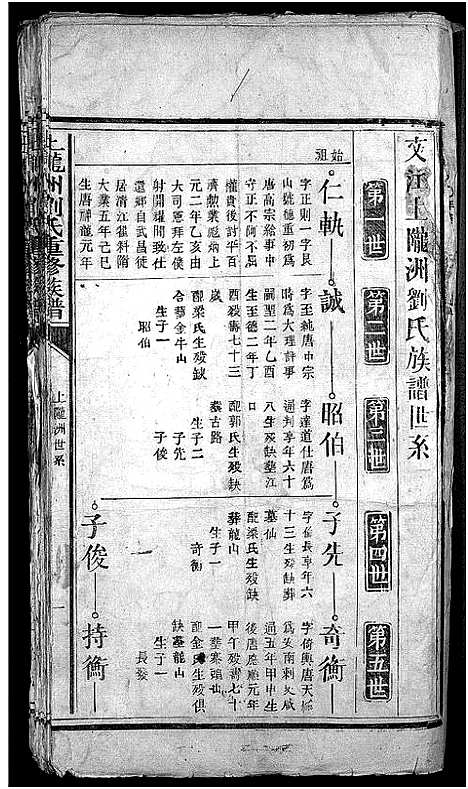 文江上隴洲劉氏族譜世系
第一世
第二世
第三世
第四世
第五世
始祖
仁軌
誠
昭伯
子先
奇衡
字正則一字艮
山號德重初爲
唐高宗給事中
守正不阿不屈
權貴後討平百
濟勳業彪炳上
元二年乙亥由
大司憲拜左僕
射開耀間致仕
還鄉自武昌徒
居清江猉科隋
大業五年己巳
生唐神龍元年
字至純唐中宗
時爲大理評事
嗣聖二年乙酉
生至德二年丁
酉歿壽七十三
歲
配梁氏生歿缺
合葬金牛山
生子一
昭伯
字達道仕唐爲
通判享年六十
八生歿缺葬江
口
配郭氏生歿缺
墓古路
生子二
子先
子俊
字在長享年六
十三生歿缺葬
墓仙
配梁氏生歿缺
葬龍山
生子一
奇衡
字倚輿唐天
爲安南刺史咸
通五年甲申生
後唐應順元年
甲午歿壽七十
一葬寨頭山
配金氏生歿俱
缺墓龍山
生子一
長發
子俊
持衡
上隴洲劉氏重修族譜
上隴洲世系
一